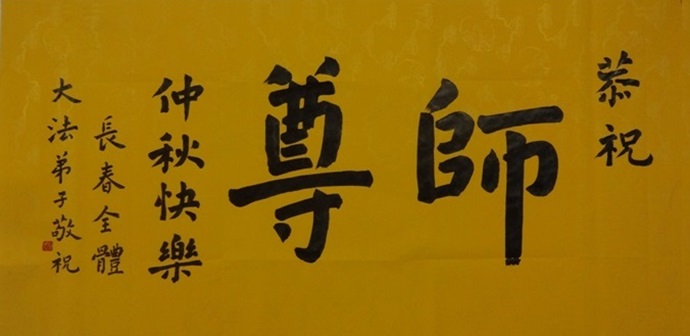 恭祝
師尊
仲秋快樂
長春全體
大法弟子敬祝